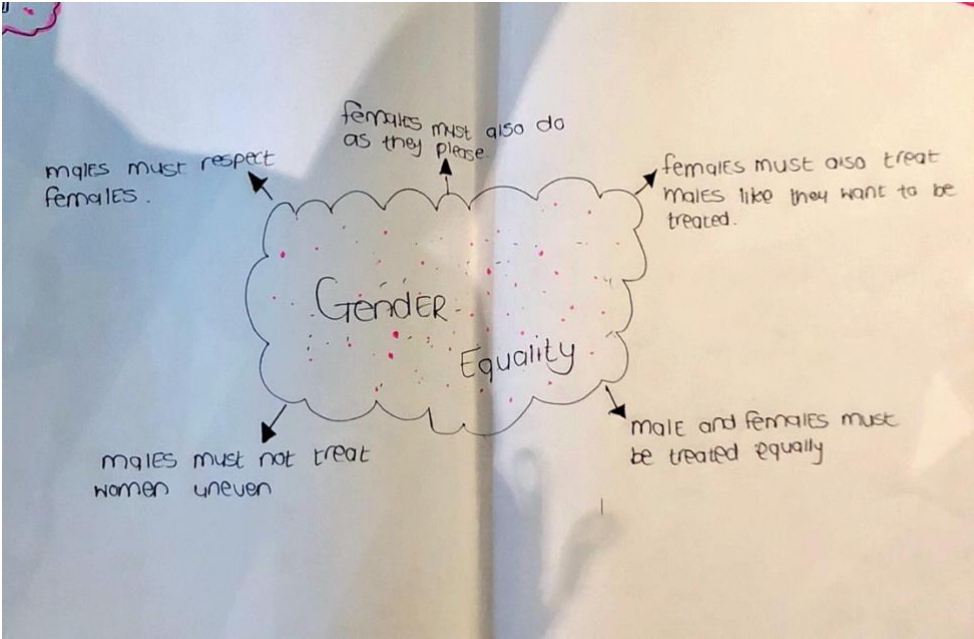 females must also do
as they please.
males must respect
females.
females must also treat
males like they want to be
treated.
GendER
Equality
males must not treat
women uneven
male and females must
be treated equally